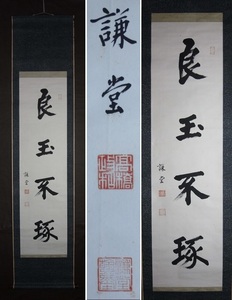 良玉不琢
謙堂
謙堂
良玉不琢
謙堂